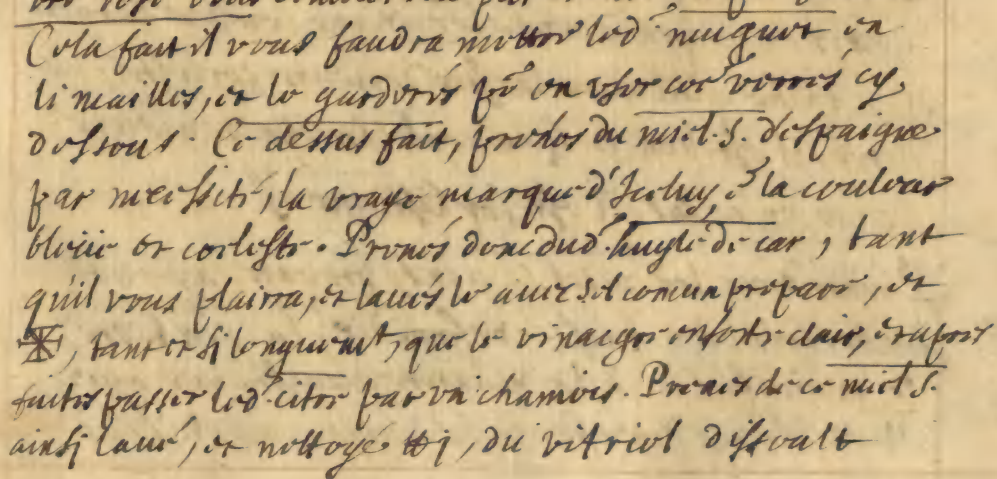 Cela fait il vous faudra mettre led. muguet en
li mailles, et le garderés po' en user cōe verrés cy
dessous. Ce dessus fait, prenés du miel. S. d'espaigne
par necessité, la vraye marque d'Iceluy, ē la couleur
bleüe et coeleste. Prenés donc dud. huyle de car, tant
quil vous plairra, et lavés le avec sel comun preparé, et
, tant et si longuemt, que le vinaigre en sorte clair, et apres
faites passer led. citre par un chamois. Prenes de ce miel S.
ainsi lavé, et nettoyé ℔j, du vitriol dissoult